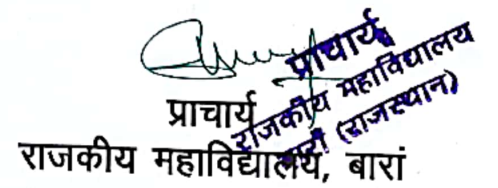 प्राचार्य
राजकीय महाविद्यालय
बारां (राजस्थान)
प्राचार्य
राजकीय महाविद्यालय, बारां